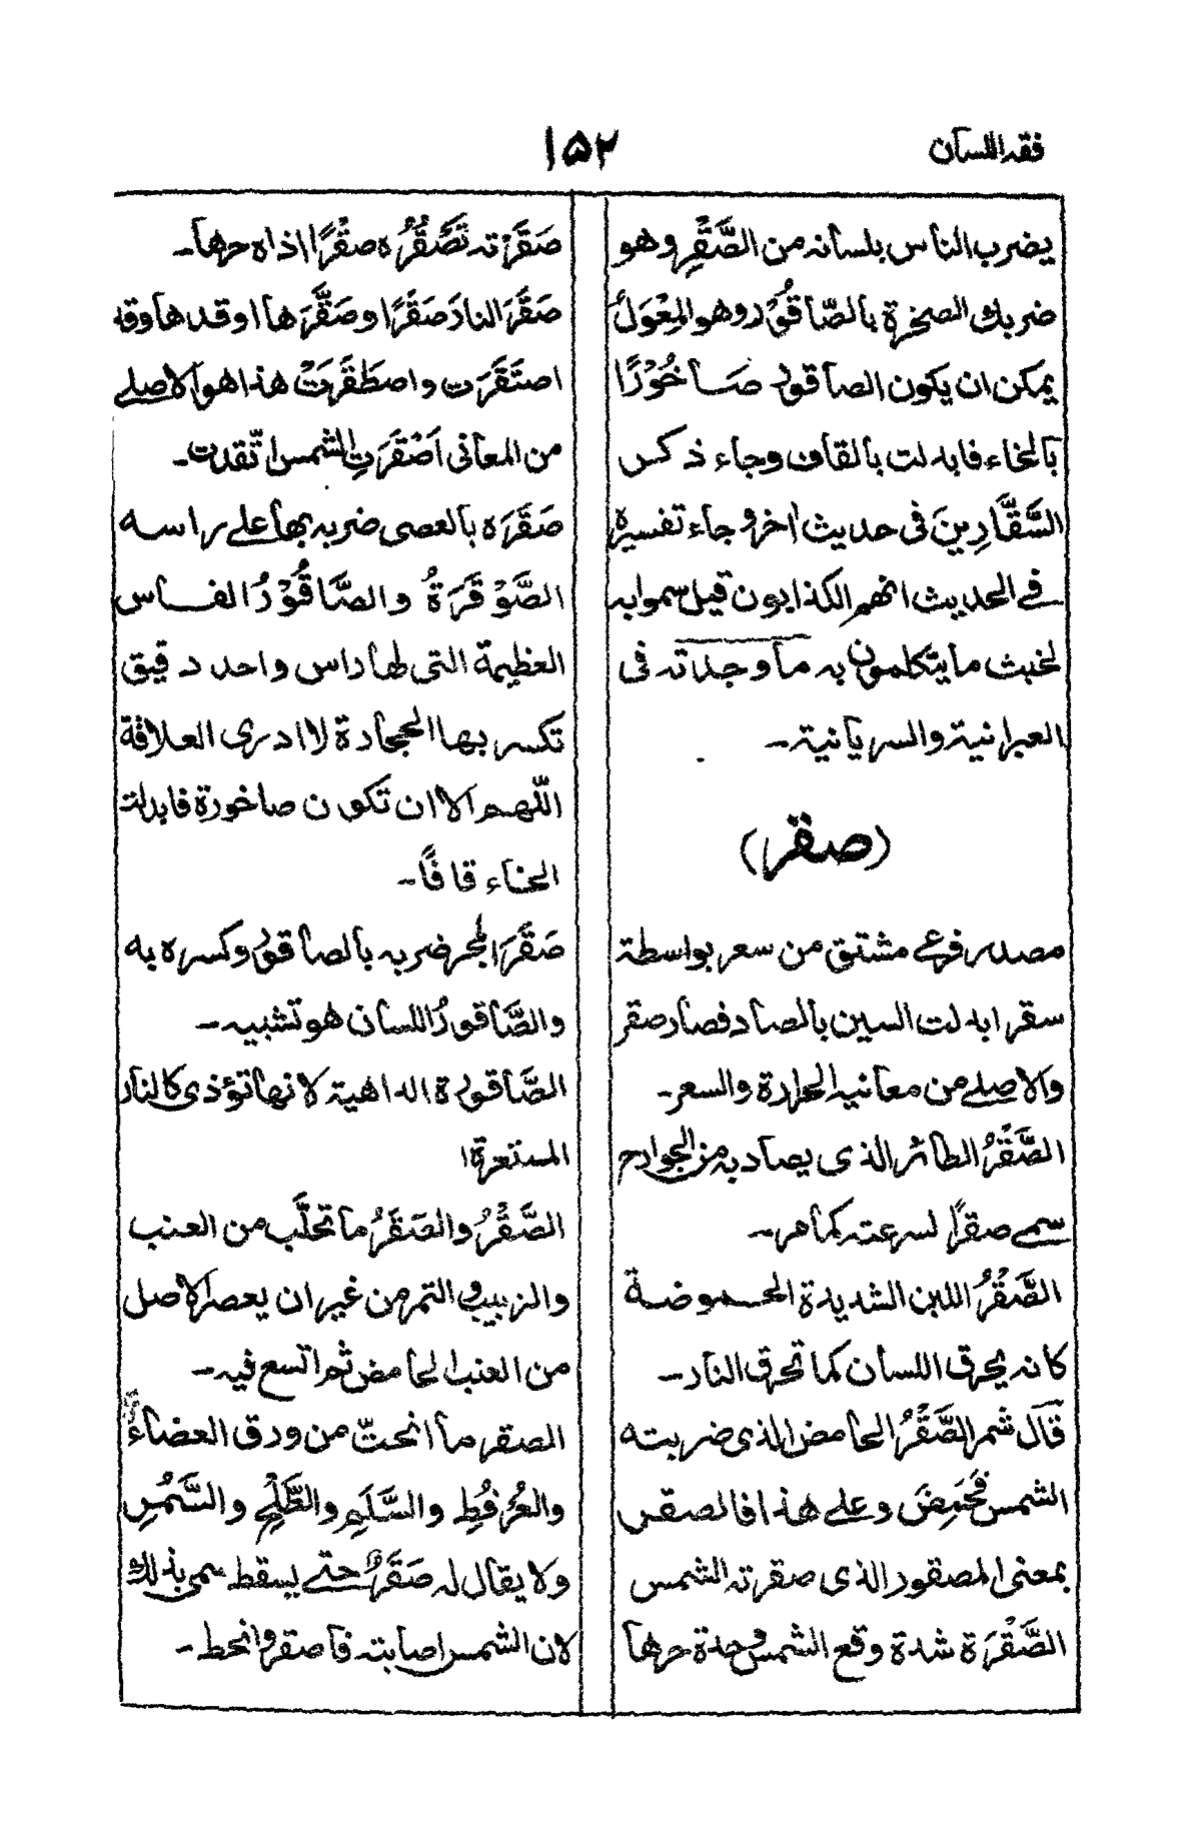 فقه اللسان
١٥٢
يضرب الناس بلسانه من الصَّقْرِ وهو
ضربك الصخرة بالصّاقُوْر وهو المِعْوَل
يمكن ان يكون الصاقور صاخُوْرًا
بالخاء فابدلت بالقاف وجاء ذكر
السَّقَّارِينَ فى حديث اخر وجاء تفسيره
في الحديث انهم الكذابون قيل سموا به
لخبث ما يتكلمون به ما وجدته فى
العبرانية والسريانية۔
(صقر)
مصدر فرعي مشتق من سعر بواسطة
سقر ابدلت السين بالصاد فصار صقر
والاصلي من معانيه الحرارة والسعر۔
الصَّقْرُ الطائر الذى يصاد به من الجوارح
سمي صقرًا لسرعته كما مر۔
الصَّقْرُ اللبن الشديدة الحموضة
كانه يحرق اللسان كما تحرق النار۔
قال شمر الصَّقْرُ الحامض الذى ضربته
الشمس فحَمِضَ وعلي هذا فالصقر
بمعنى المصقور الذى صقرته الشمس
الصَّقْرَة شدة وقع الشمس وحدة حرها
صَقَرَتْه تَصْقُرُه صقْرًا اذاه حرها۔
صَقَرَ النارَ صَقْرًا وصَقَّرَها اوقدها وقد
اصتَقَرَت واصطَقَرَتْ هذا هو الاصلي
من المعانى اَصْقَرَتِ الشمس اتّقدت۔
صَقَرَه بالعصى ضربه بها على راسه
الصَّوْقَرَةُ والصَّاقُوْرُ الفاس
العظيمة التى لها راس واحد دقيق
تكسر بها الحجارة لا ادرى العلاقة
اللّهم الا ان تكون صاخورة فابدلت
الخاء قافًا۔
صَقَرَ الحجر ضربه بالصاقور وكسره به
والصَّاقورُ اللسان هو تشبيه۔
الصَّاقورة الداهية لانها تؤذى كالنار
المستعرة۱
الصَّقْرُ والصَقَرُ ما تحلَّب من العنب
والزبيب والتمر من غير ان يعصر الاصل
من العنب الحامض ثم اتسع فيه۔
الصقر ما انحتّ من ورق العضاءُ
والعُرْفُطِ والسَّلَمِ والطَّلْحِ والسَّمُرِ
ولا يقال له صَقَرٌ حتى يسقط سمى بذلك
لان الشمس اصابته فاصقر وانحط۔